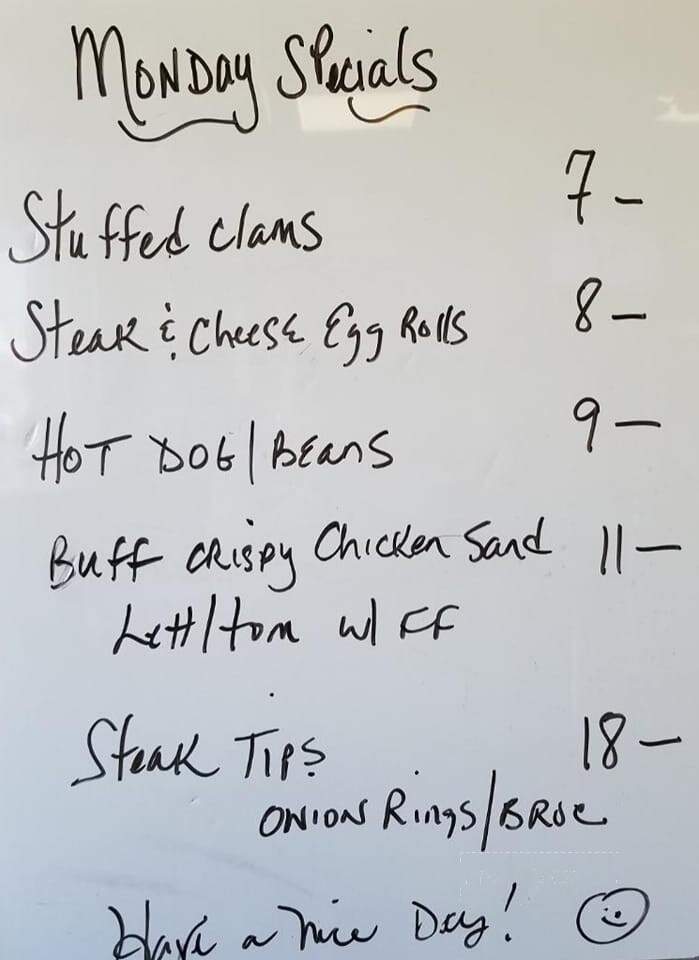 Monday Specials
Stuffed Clams 7-
Steak & Cheese Egg Rolls 8-
Hot Dog/Beans 9-
Buff Crispy Chicken Sand 11-
Lett/tom w/ FF
Steak Tips 18-
Onion Rings/Broc
Have a nice Day!